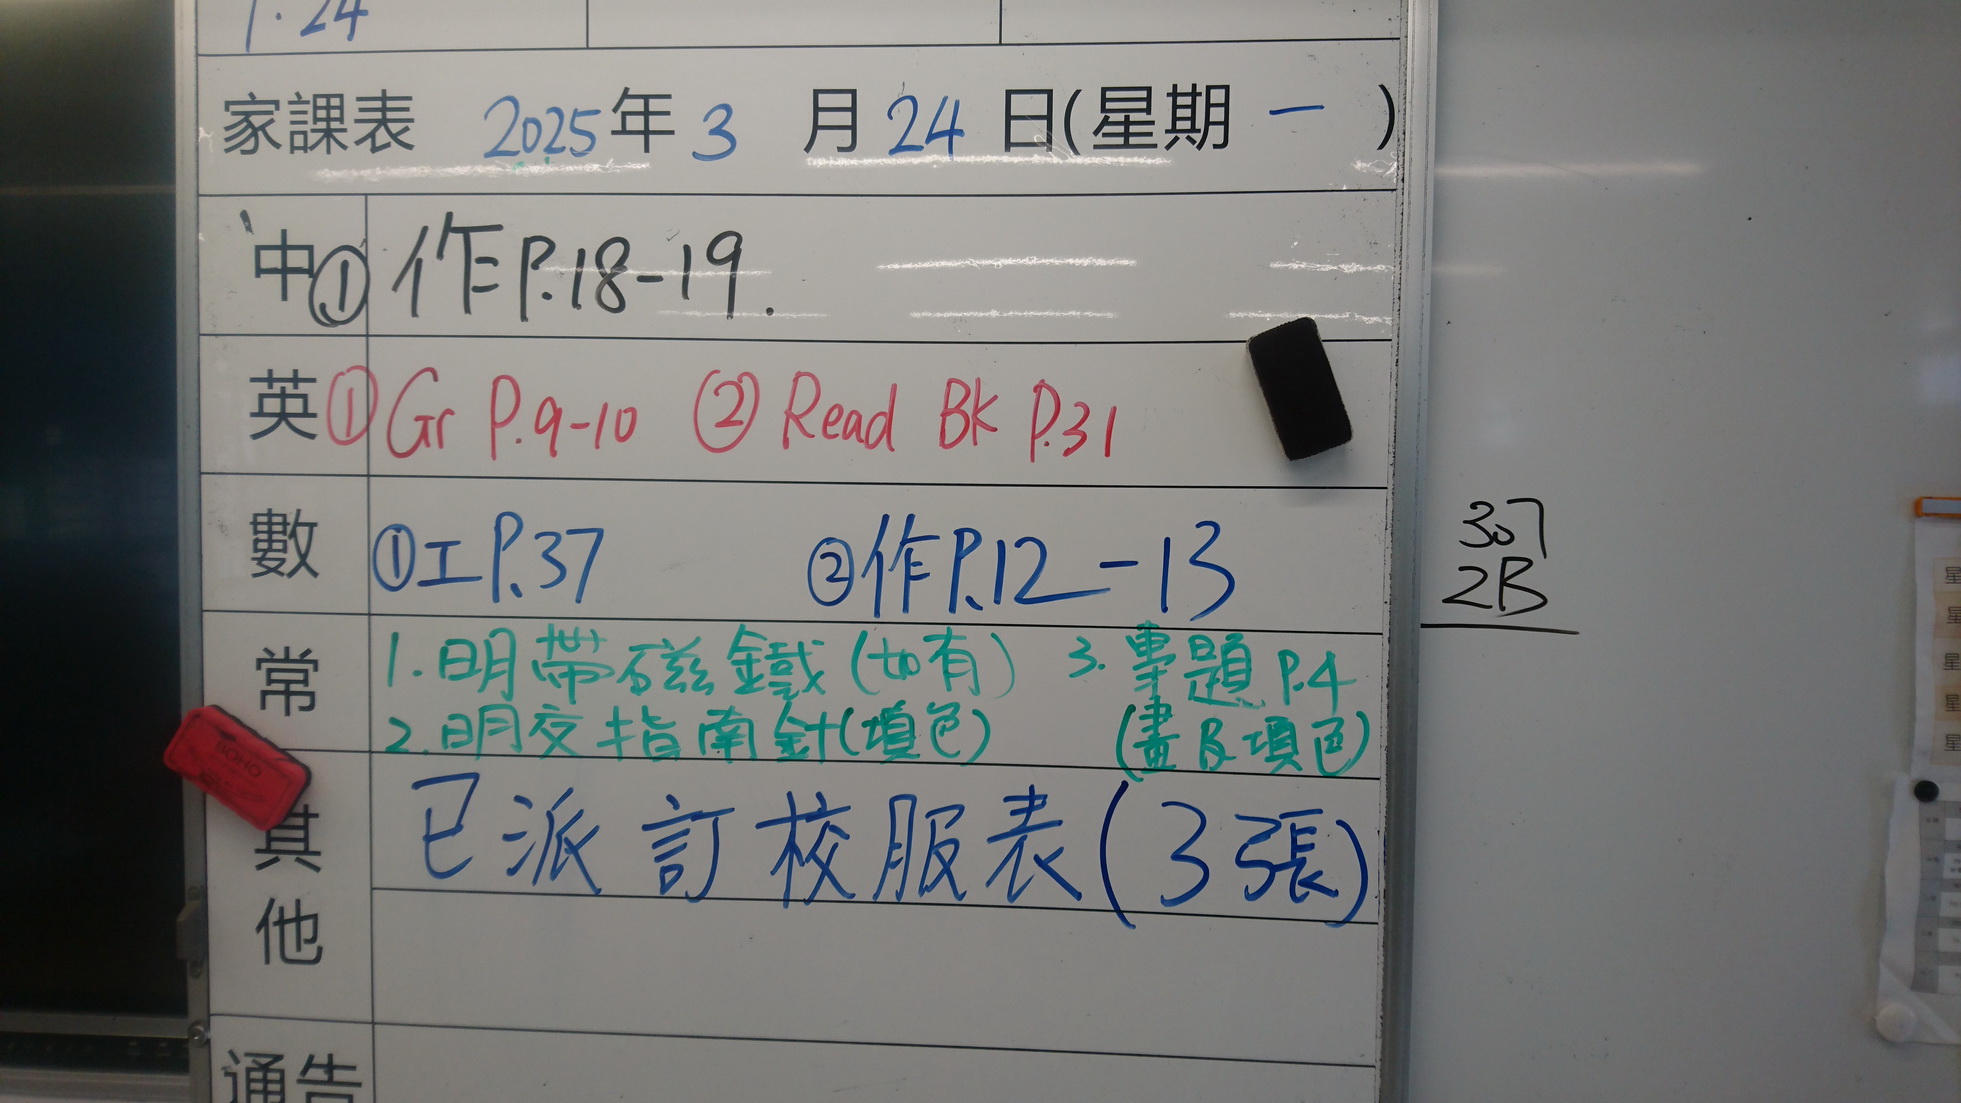 家課表 2025年3月24日(星期一)
中① 作P.18-19.
英① Gr P.9-10 ② Read BK P.31
數 ①工P.37 ②作P.12-13
常 1.明帶磁鐵(如有) 3.專題P.4
2.明交指南針(填色) (畫及填色)
其他 已派訂校服表(3張)
通告
307
2B
SOHO